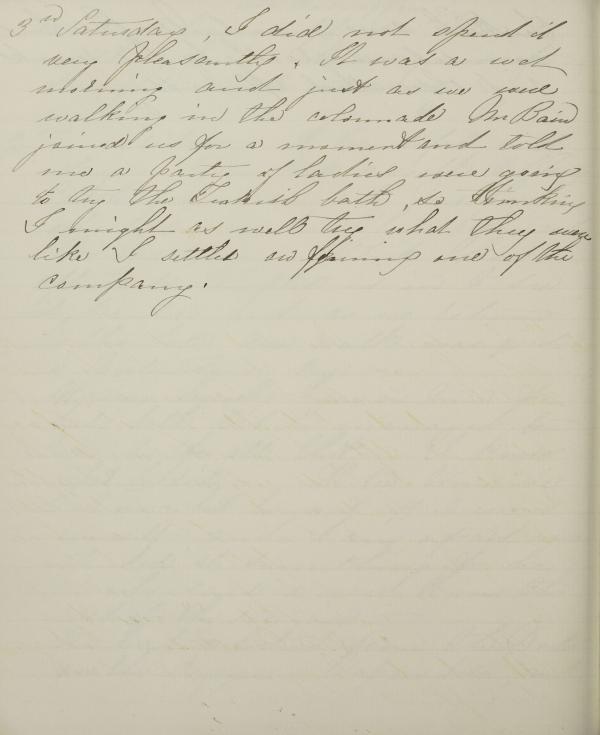 3rd Saturday, I did not spend it
very pleasantly. It was a wet
morning and just as we were
walking in the colonnade Mr Bain
joined us for a moment and told
me a party of ladies were going
to try the Turkish bath, so thinking
I might as well try what they were
like I settled on joining one of the
company.